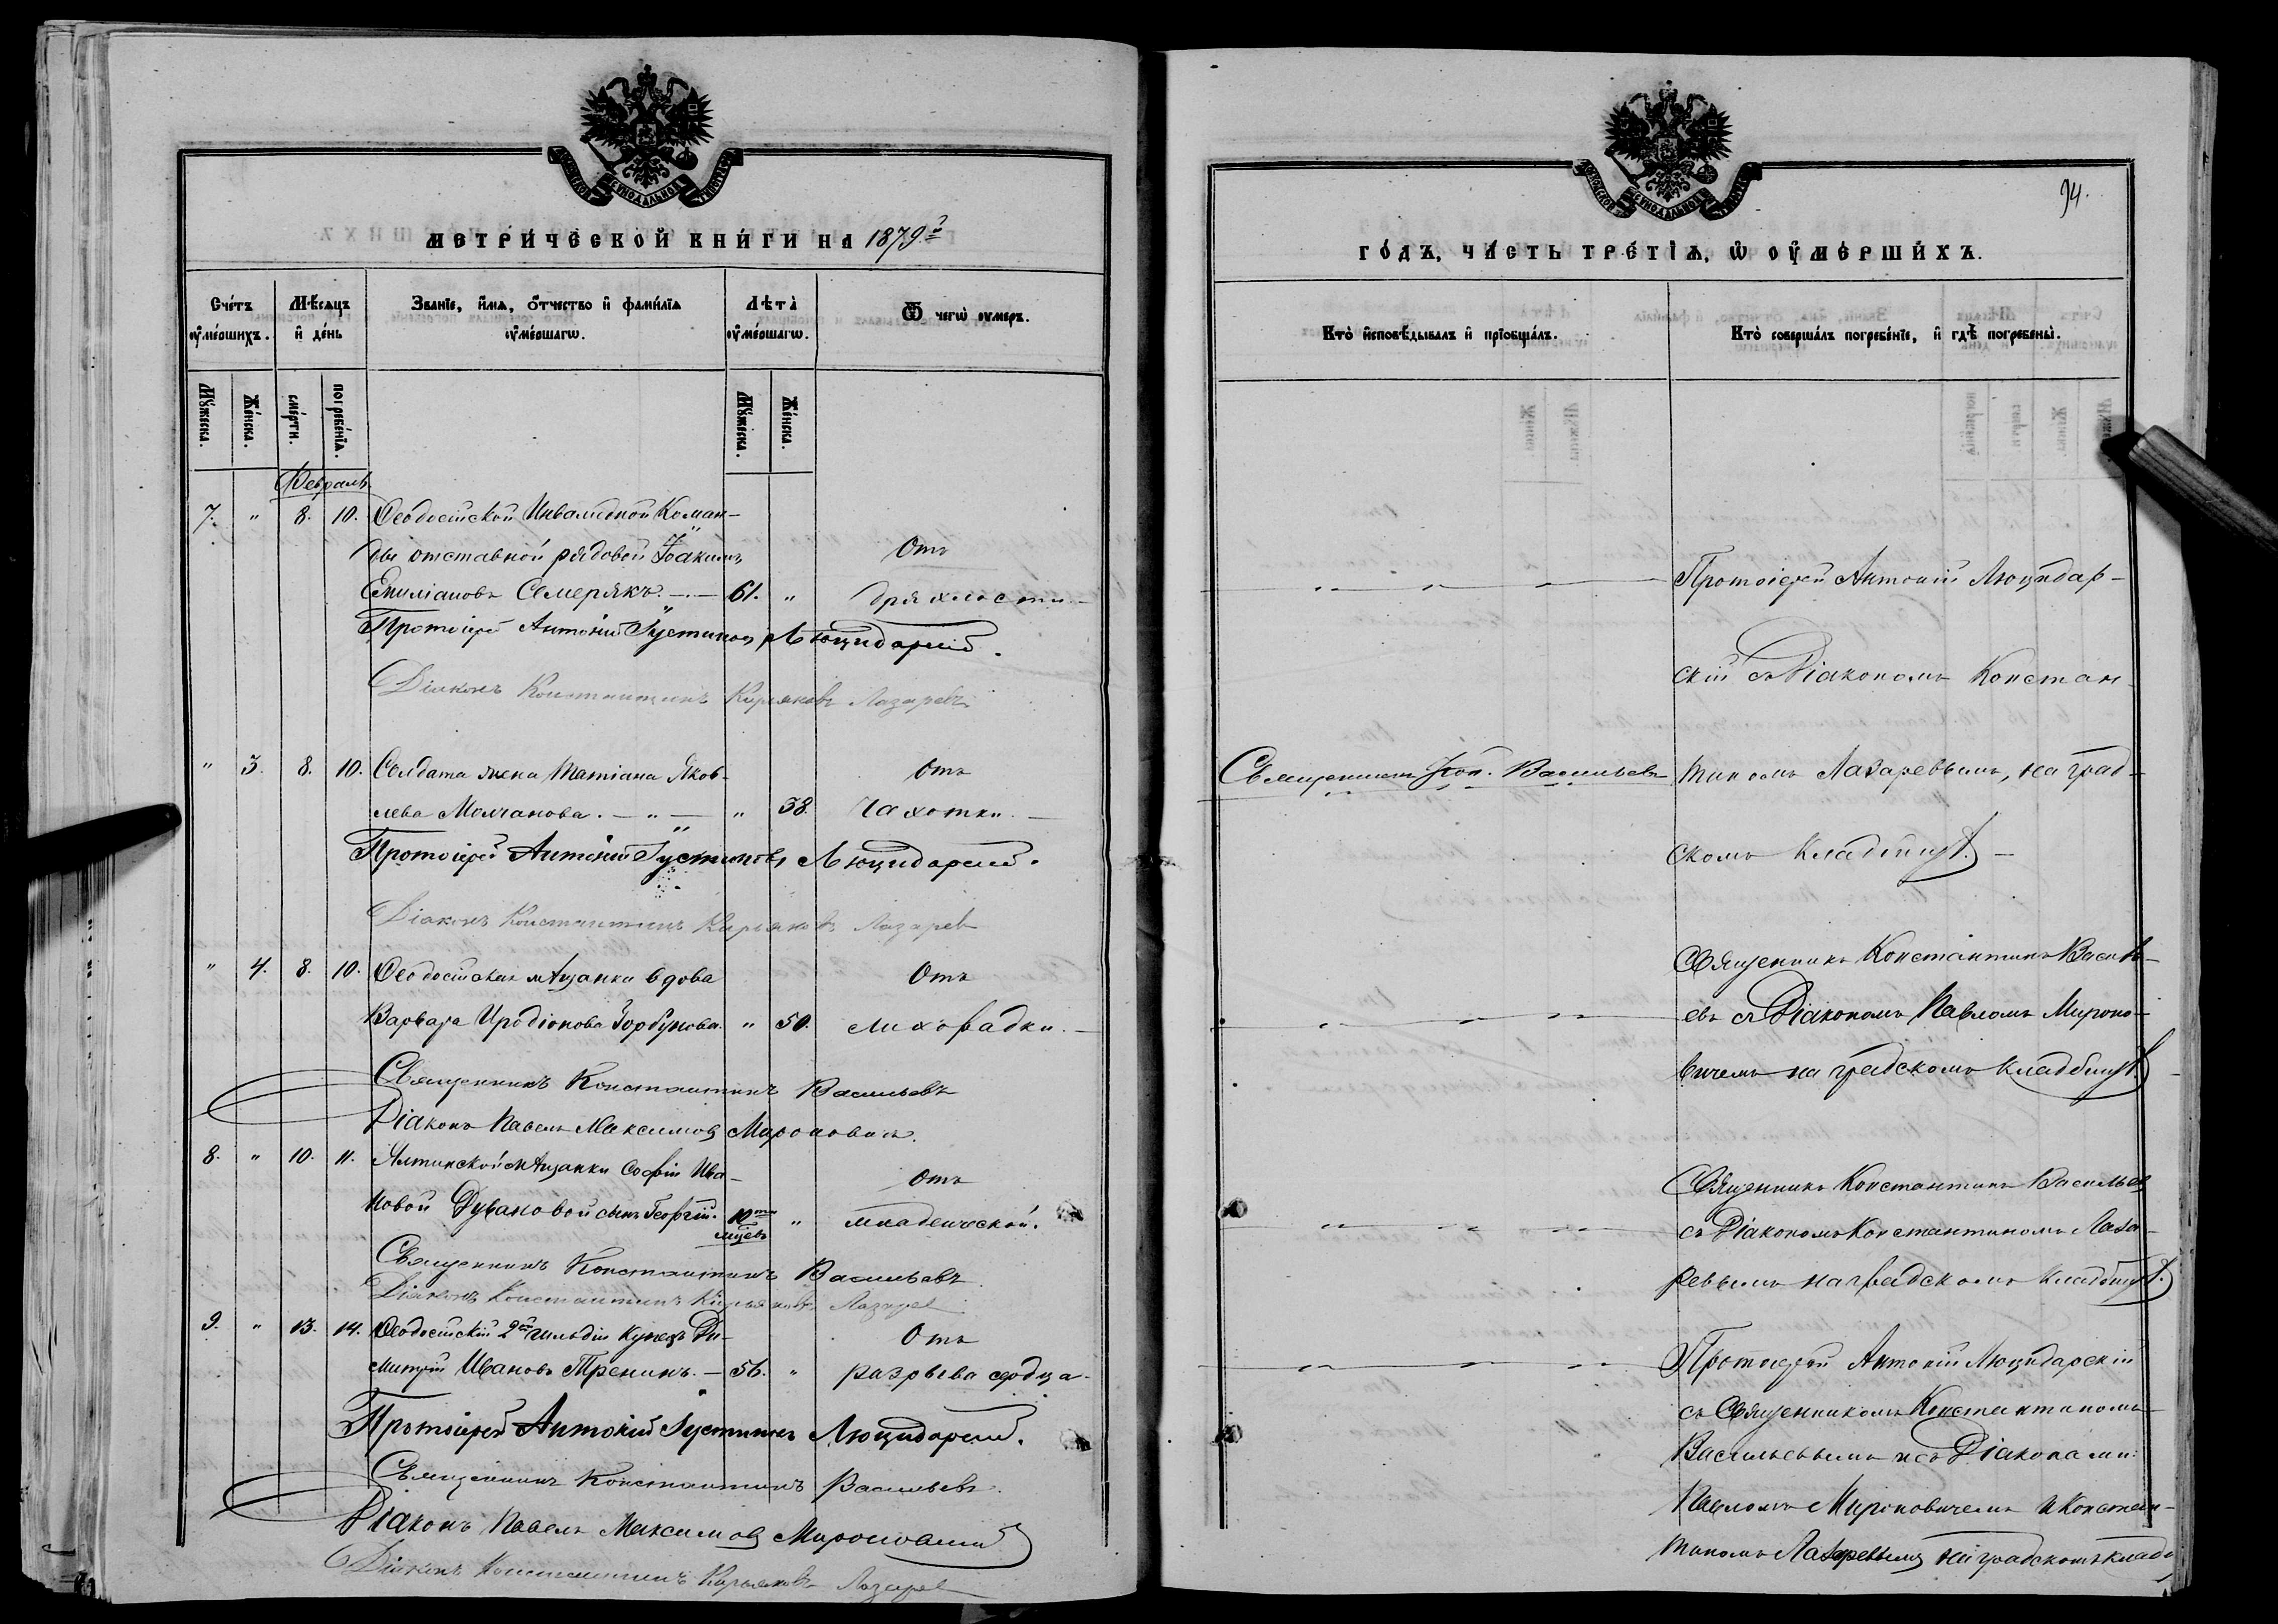 МОСКОВСКОЙ СѴНОДАЛЬНОЙ ТИПОГРАФІИ
МЕТРИ́ЧЕСКОЙ КНИ́ГИ НА 1879й
Сче́тъ ᲂу҆ме́ршихъ.
Мѣ́сяцъ и҆ де́нь
Зва́нїе, и҆́мѧ, ѻ҆́тчество и҆ фами́лїѧ ᲂу҆ме́ршагѡ.
Лѣта̀ ᲂу҆ме́ршагѡ.
Ѿ чегѡ̀ ᲂу҆меръ.
Мꙋ́жеска.
Же́нска.
сме́рти.
погребе́нїѧ.
Мꙋ́жеска.
Же́нска.
Февраль
7. " 8. 10. Ѳеодосійской Инвалидной Коман-
ды отставной рядовой Іоакимъ Отъ
Емиліановъ Семерякъ. — 61. " дряхлости. —
Протоіерей Антоній Іустиновъ Люцидарскій.
Діаконъ Константинъ Кирьяковъ Лазаревъ
" 3. 8. 10. Солдата жена Татіана Яков- Отъ
лева Молчанова. — " — " 38. Чахотки. —
Протоіерей Антоній Іустиновъ Люцидарскій.
Діаконъ Константинъ Кирьяковъ Лазарев
" 4. 8. 10. Ѳеодосійская мѣщанка вдова Отъ
Варвара Иродіонова Горбунова. " 50. лихорадки. —
Священникъ Константинъ Васильевъ
Діаконъ Павелъ Максимовъ Мироновичъ.
8. " 10. 11. Ялтинской мѣщанки Софіи Ива- Отъ
новой Дувановой сынъ Георгій. 10ти мцевъ " младенческой.
Священникъ Константинъ Васильевъ
Діаконъ Константинъ Кирьяковъ Лазарев
9. " 13. 14. Ѳеодосійскій 2й гильдіи купецъ Ди- Отъ
митрій Ивановъ Тренинъ. — 56. " разрыва сердца.
Протоіерей Антоній Іустиновъ Люцидарскій.
Священникъ Константинъ Васильевъ.
Діаконъ Павелъ Максимовъ Мироновичъ
Діаконъ Константинъ Кирьяковъ Лазарев
МОСКОВСКОЙ СѴНОДАЛЬНОЙ ТИПОГРАФІИ
94.
ГО́ДЪ, ЧА́СТЬ ТРЕ́ТЇѦ, Ѡ҆ ОУ҆МЕ́РШИХЪ.
Кто̀ и҆сповѣ́дывалъ и҆ прїобща́лъ.
Кто̀ соверша́лъ погребе́нїе, и҆ гдѣ̀ погребены̀.
Протоіерей Антоній Люцидар-
скій съ Діакономъ Констан-
Священникъ Кон. Васильевъ
тиномъ Лазаревымъ, на град-
скомъ кладбищѣ. —
Священникъ Константинъ Василь-
евъ съ Діакономъ Павломъ Мироно-
вичемъ на градскомъ кладбищѣ.
Священникъ Константинъ Васильев
съ Діакономъ Константиномъ Лаза-
ревымъ на градскомъ кладбищѣ.
Протоіерей Антоній Люцидарскій
съ Священникомъ Константиномъ
Васильевымъ и съ Діаконами:
Павломъ Мироновичемъ и Констан-
тиномъ Лазаревымъ на градскомъ кладб